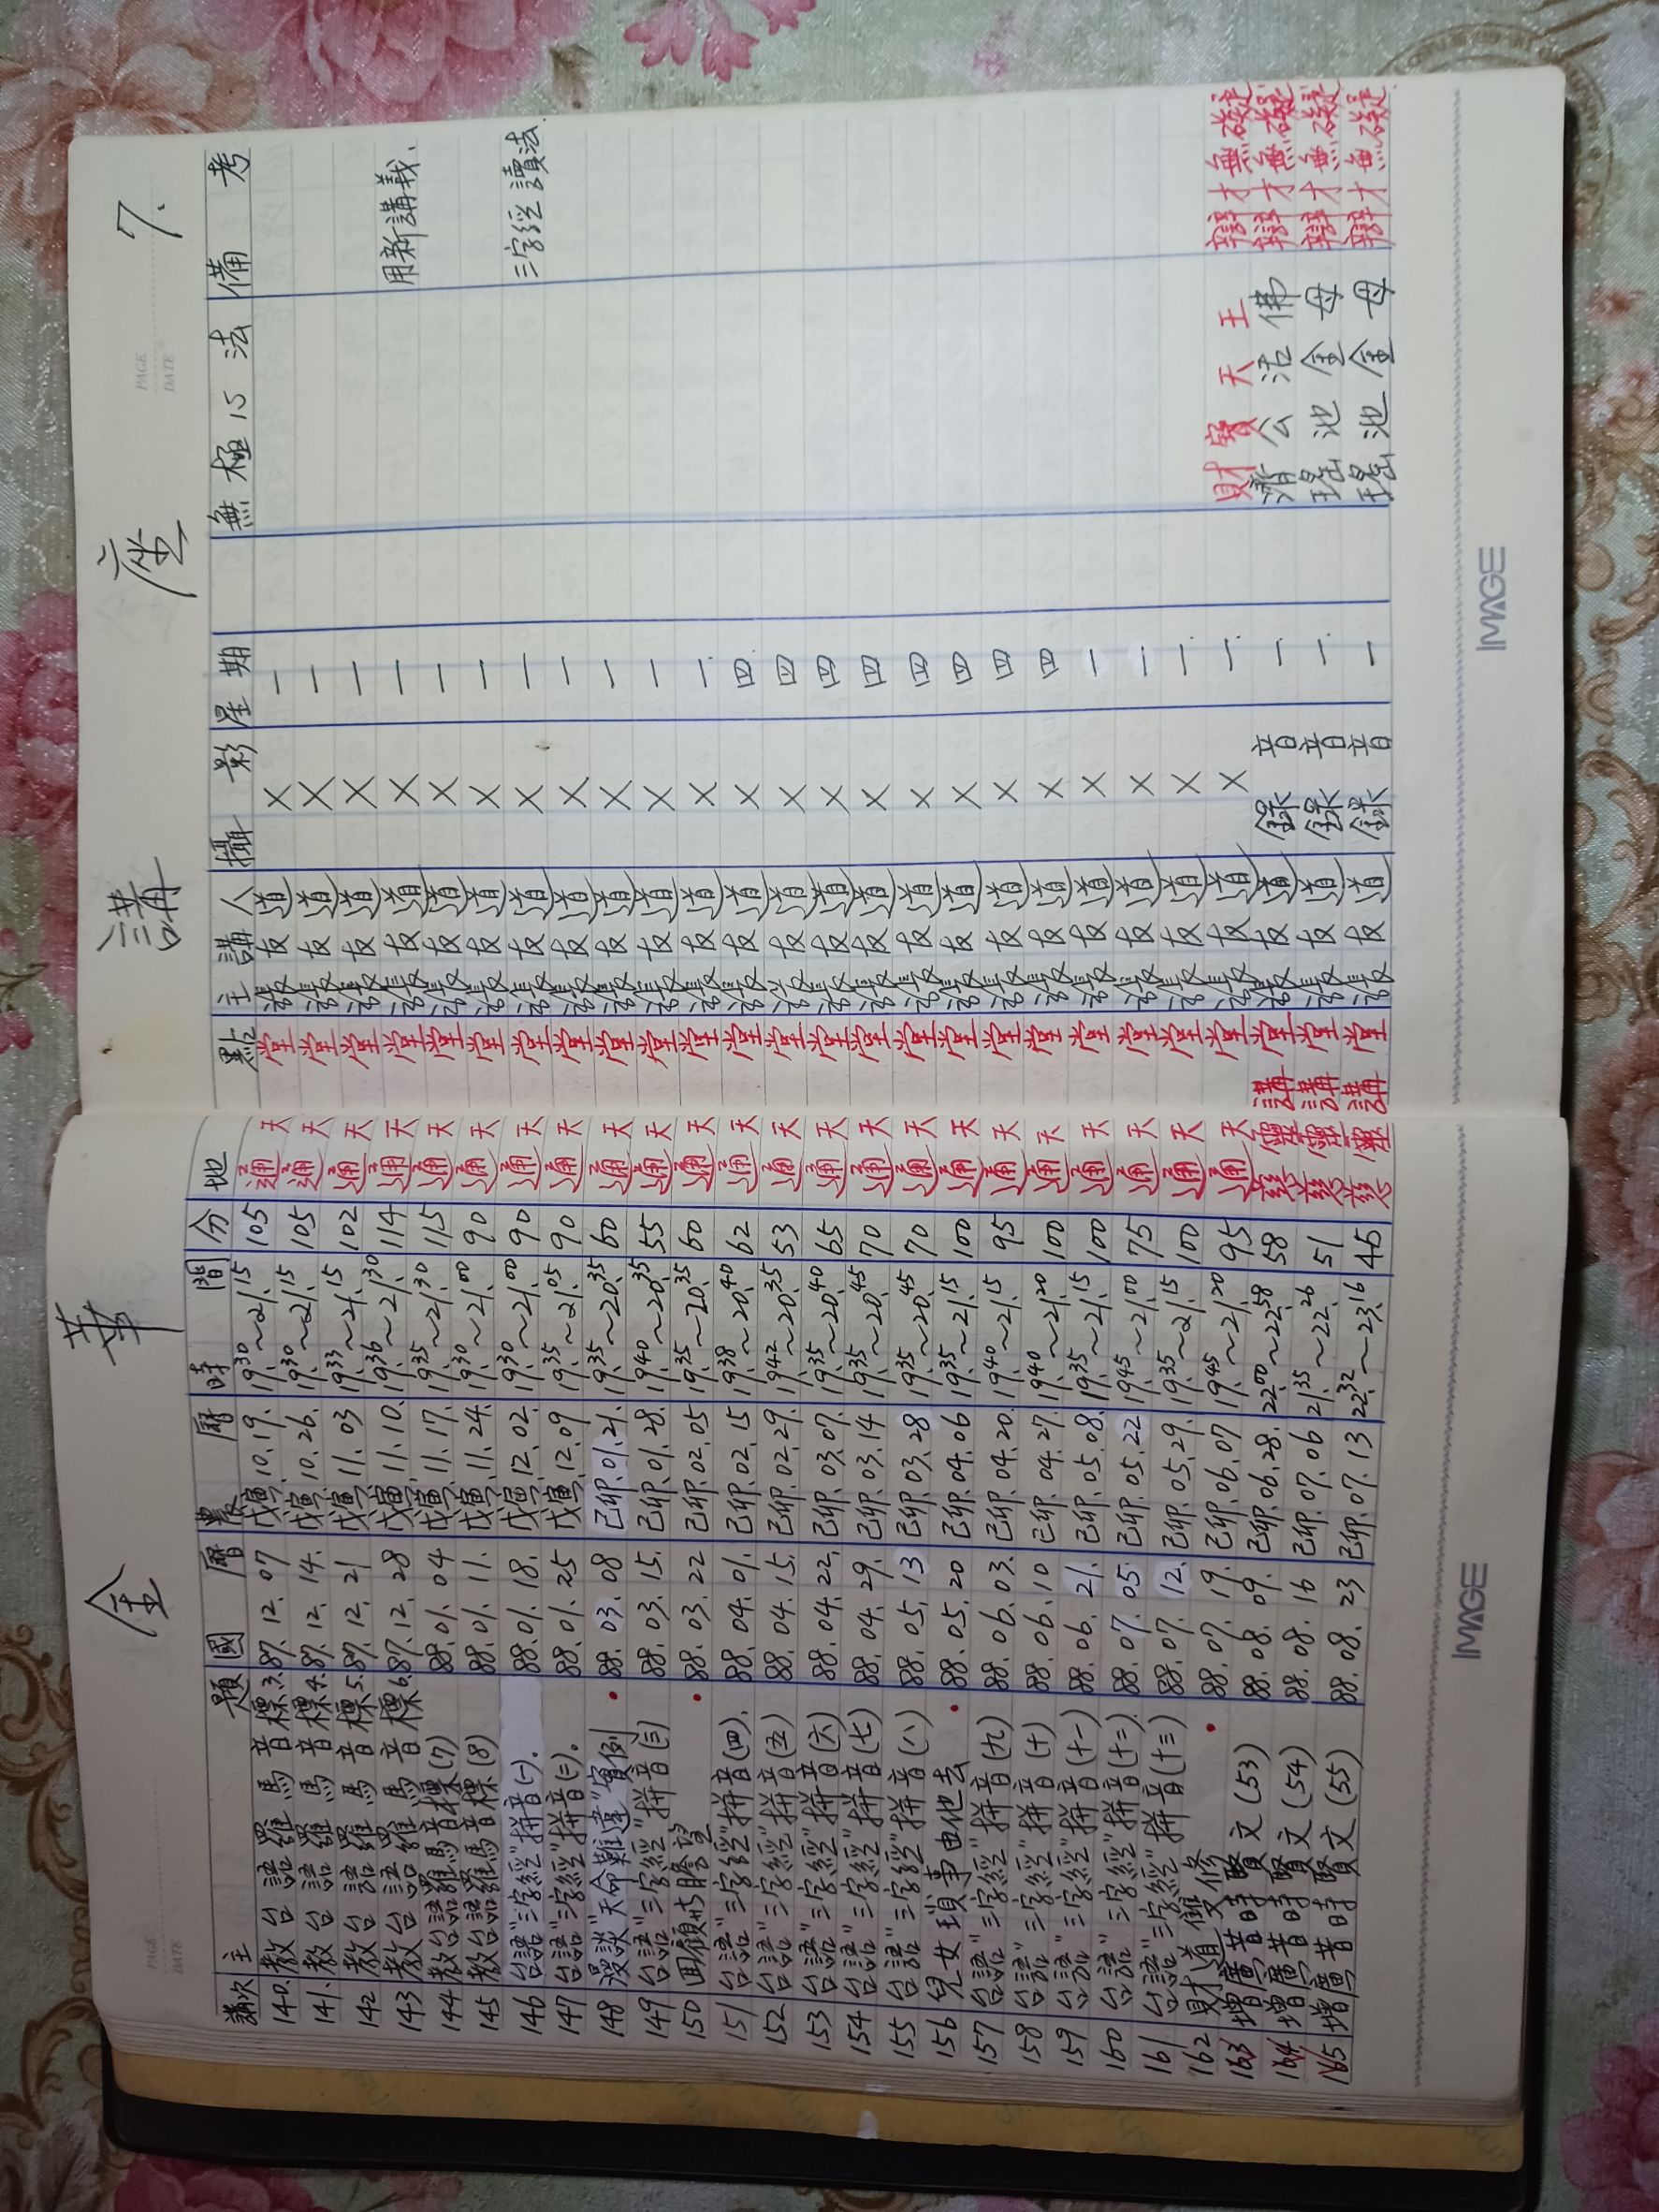 金華講座 7.
講次 主題 國曆 農曆 時間 分 地點 主講人 攝影 星期 無極15法 備考
140. 教台語羅馬音標3. 87. 12. 07 戊寅. 10. 19. 19.30~21.15 105 通天 × 一
141. 教台語羅馬音標4. 87. 12. 14. 戊寅. 10. 26. 19.30~21.15 105 通天 × 一
142 教台語羅馬音標5. 87. 12. 21 戊寅. 11. 03 19.33~21.15 102 通天 × 一
143 教台語羅馬音標6. 87. 12. 28 戊寅. 11. 10. 19.36~21.30 114 通天 × 一 用新講義、
144 教台語羅馬音標(7) 88. 01. 04 戊寅. 11. 17. 19.35~21.30 115 通天 × 一
145 教台語羅馬音標(8) 88. 01. 11. 戊寅. 11. 24. 19.30~21.00 90 通天 × 一
146 台語"三字經"拼音(一). 88. 01. 18. 戊寅. 12. 02. 19.30~21.00 90 通天 × 一 三字經讀法.
147 台語"三字經"拼音(二). 88. 01. 25 戊寅. 12. 09 19.35~21.05 90 通天 × 一
148 漫談"天命難違"實例 88. 03. 08 己卯. 01. 21. 19.35~20.35 60 通天 × 一
149 台語"三字經"拼音(三) 88. 03. 15. 己卯. 01. 28. 19.40~20.35 55 通天 × 一
150 回顧卅5瞻望 88. 03. 22 己卯. 02. 05 19.35~20.35 60 通天 × 一
151 台語"三字經"拼音(四). 88. 04. 01. 己卯. 02. 15 19.38~20.40 62 通天 × 四
152 台語"三字經"拼音(五) 88. 04. 15. 己卯. 02. 29. 19.42~20.35 53 通天 × 四
153 台語"三字經"拼音(六) 88. 04. 22. 己卯. 03. 07. 19.35~20.40 65 通天 × 四
154 台語"三字經"拼音(七) 88. 04. 29. 己卯. 03. 14 19.35~20.45 70 通天 × 四
155 台語"三字經"拼音(八) 88. 05. 13 己卯. 03. 28 19.35~20.45 70 通天 × 四
156 兒女瑣事由他去 88. 05. 20 己卯. 04. 06 19.35~21.15 100 通天 × 四
157 台語"三字經"拼音(九) 88. 06. 03. 己卯. 04. 20. 19.40~21.15 95 通天 × 四
158 台語"三字經"拼音(十) 88. 06. 10 己卯. 04. 27. 19.40~21.20 100 通天 × 四
159 台語"三字經"拼音(十一) 88. 06. 21. 己卯. 05. 08. 19.35~21.15 100 通天 × 一
160 台語"三字經"拼音(十二) 88. 07. 05 己卯. 05. 22 19.45~21.00 75 通天 × 一
161 台語"三字經"拼音(十三) 88. 07. 12. 己卯. 05. 29. 19.35~21.15 100 通天 × 一
162 財道雙修 88. 07. 19. 己卯. 06. 07 19.45~21.20 95 通天 × 一 財寶天王 辯才無礙
163 增廣昔時賢文(53) 88. 08. 09. 己卯. 06. 28. 22.00~22.58 58 慈靈講 錄音 一 濟公活佛 辯才無礙
164 增廣昔時賢文(54) 88. 08. 16 己卯. 07. 06 21.35~22.26 51 慈靈講 錄音 一 瑤池金母 辯才無礙
165 增廣昔時賢文(55) 88. 08. 23 己卯. 07. 13 22.32~23.16 45 慈靈講 錄音 一 瑤池金母 辯才無礙
PAGE
DATE
PAGE
DATE
IMAGE
IMAGE